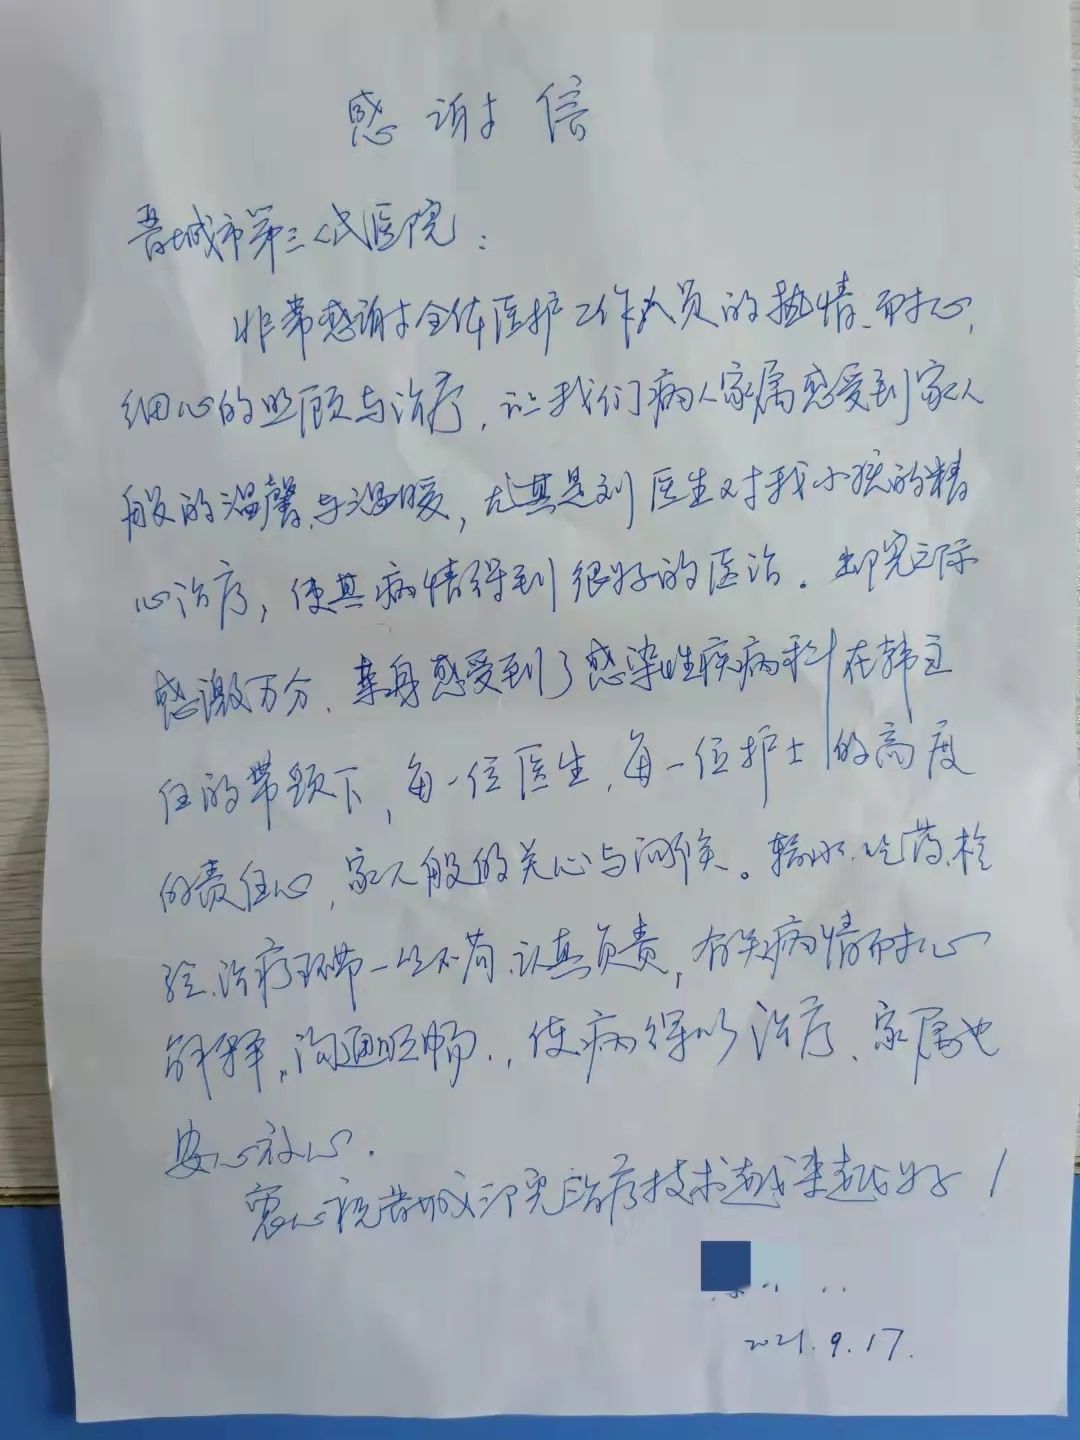 感谢信
晋城市第三人民医院：
非常感谢全体医护工作人员的热情、耐心、
细心的照顾与治疗，让我们病人家属感受到家人
般的温馨与温暖，尤其是刘医生对我小孩的精
心治疗，使其病情得到很好的医治。出院之际
感激万分、亲身感受到了感染性疾病科在韩主
任的带领下，每一位医生，每一位护士的高度
的责任心，家人般的关心与问候。输水、吃药、检
验、治疗环节一丝不苟、认真负责，有关病情耐心
解释，沟通顺畅，使病得以治疗、家属也
安心放心．
衷心祝晋城三院治疗技术越来越好！
2021.9.17.